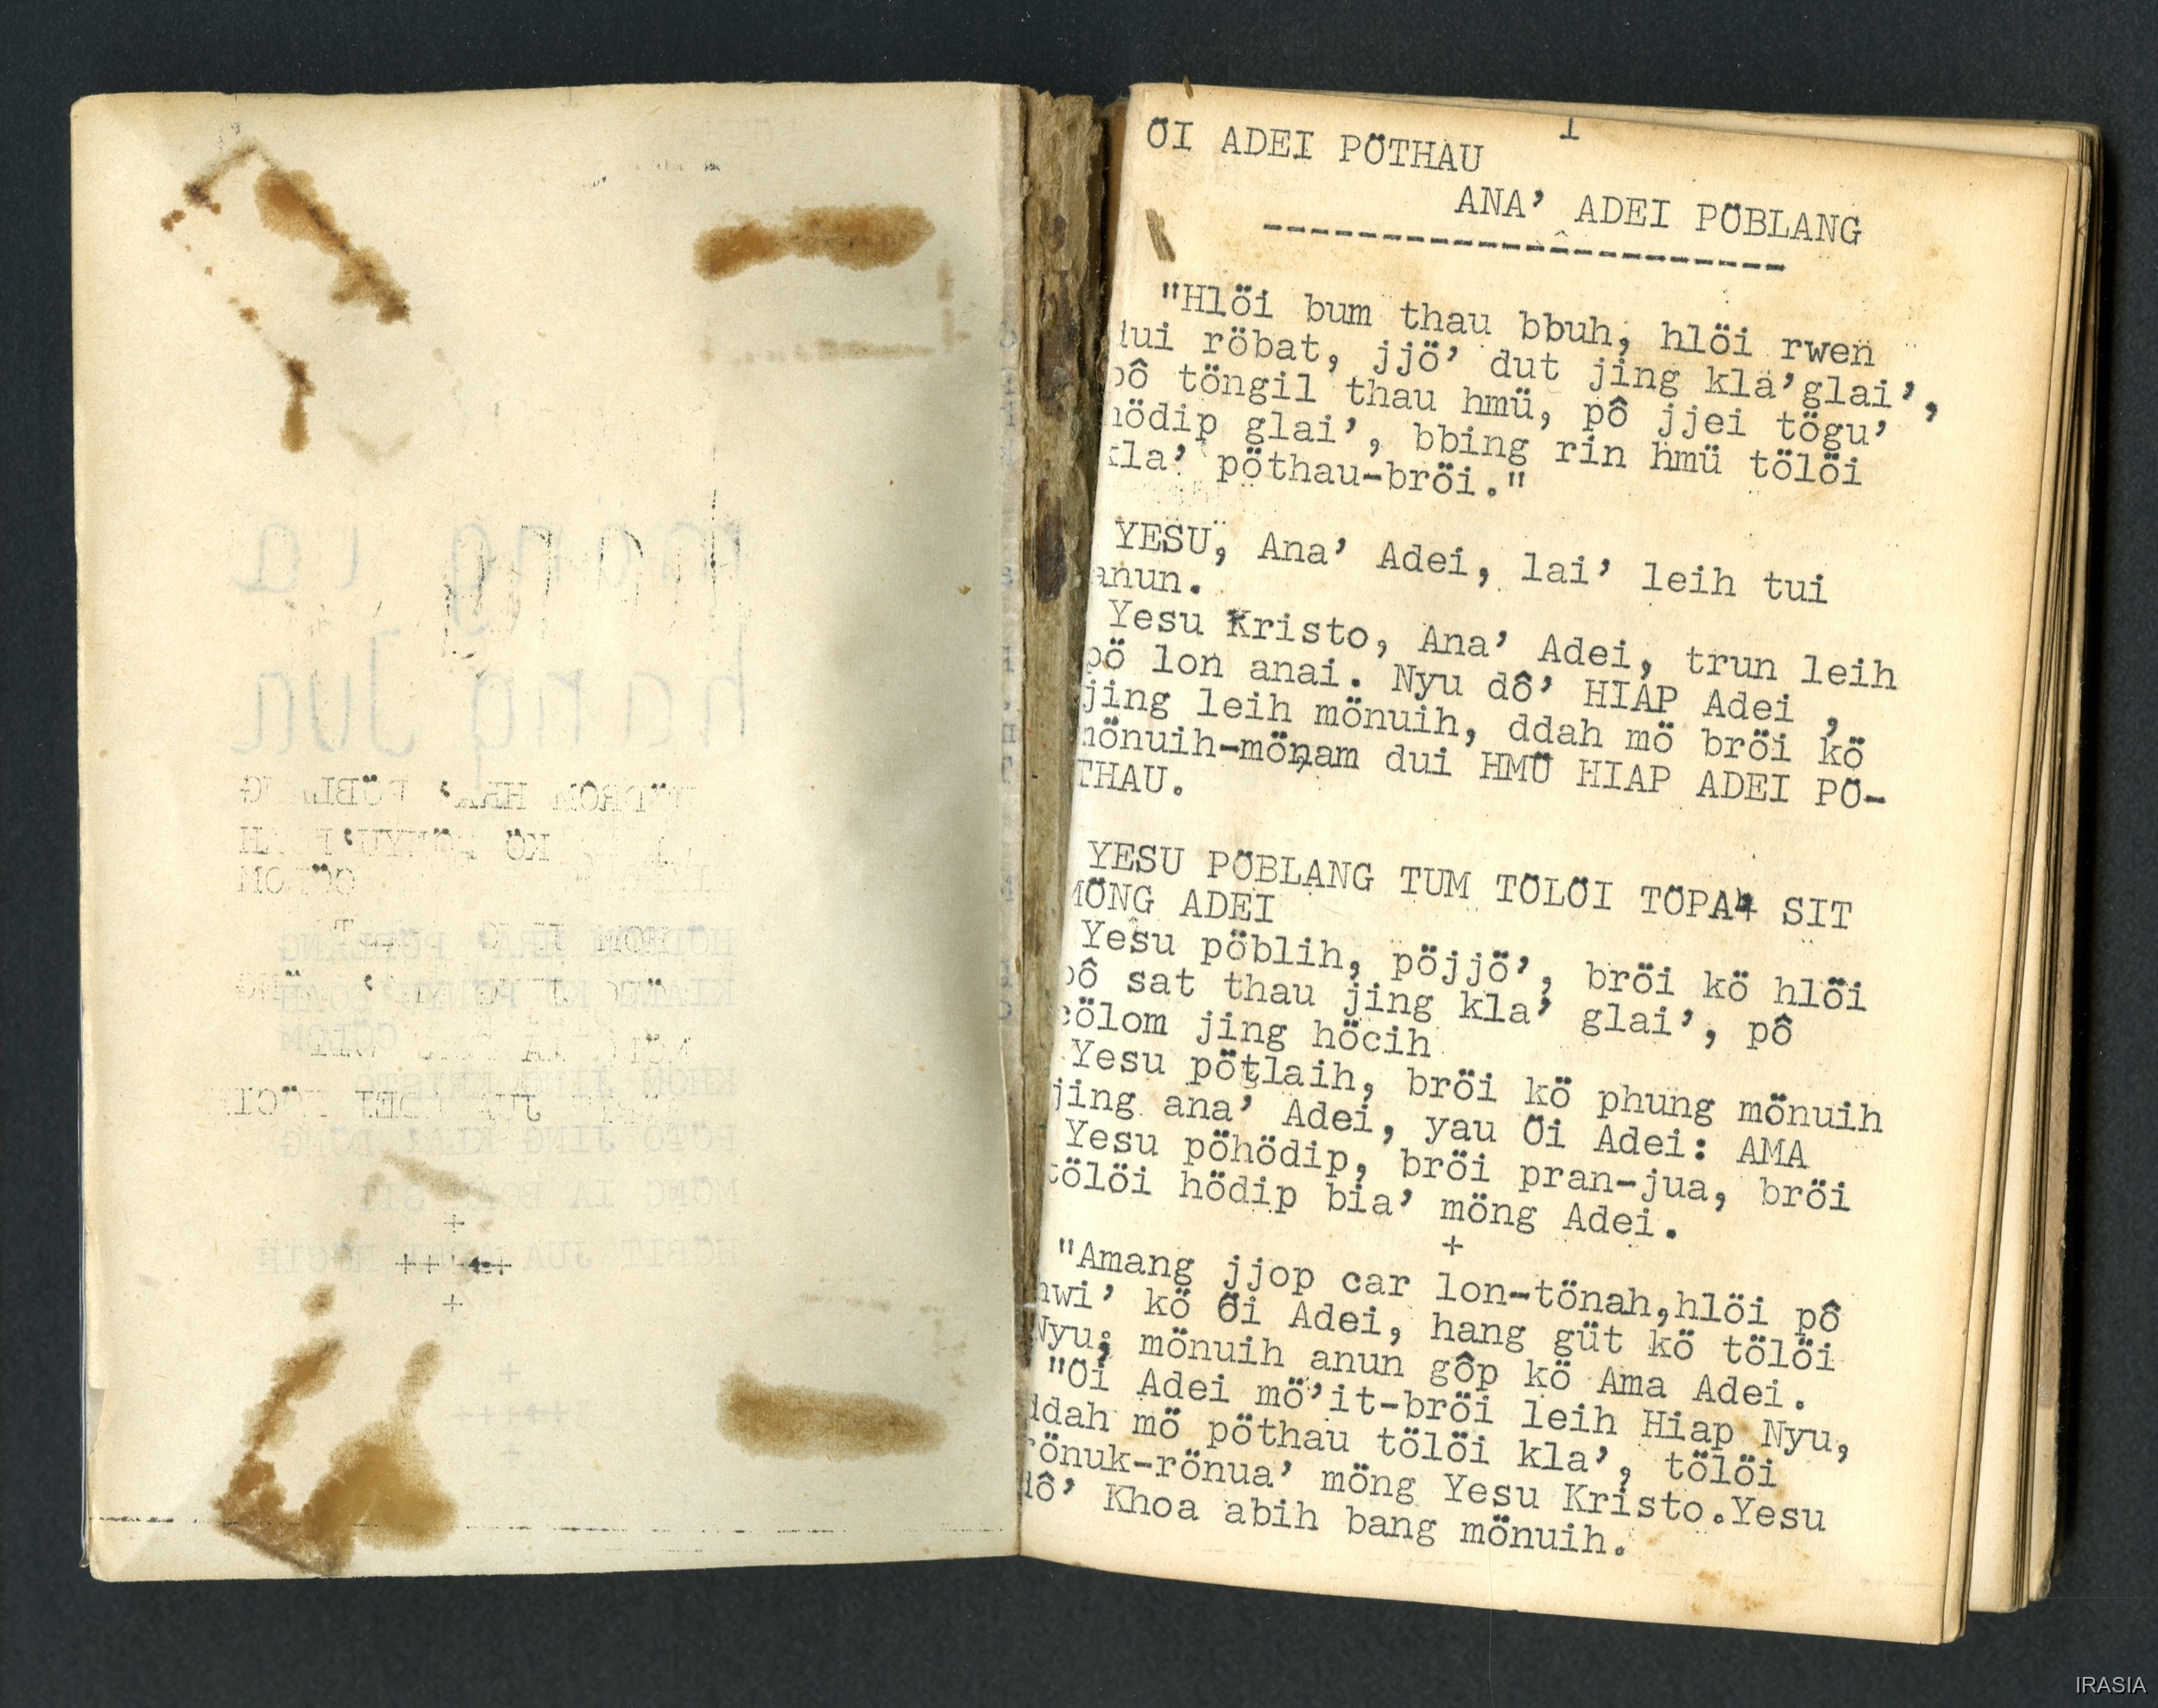 1
ÖI ADEI PÖTHAU
ANA’ ADEI PÖBLANG
"Hlöi bum thau bbuh, hlöi rwen
dui röbat, jjö’ dut jing kla’glai’,
pô töngil thau hmü, pô jjei tögu’
hödip glai’, bbing rin hmü tölöi
kla’ pöthau-bröi."
YESU, Ana’ Adei, lai’ leih tui
anun.
Yesu Kristo, Ana’ Adei, trun leih
pö lon anai. Nyu dô’ HIAP Adei ,
jing leih mönuih, ddah mö bröi kö
mönuih-mönam dui HMÜ HIAP ADEI PÖ-
THAU.
YESU PÖBLANG TUM TÖLÖI TÖPA SIT
MÖNG ADEI
Yesu pöblih, pöjjö’, bröi kö hlöi
pô sat thau jing kla’ glai’, pô
cölom jing höcih
Yesu pötlaih, bröi kö phung mönuih
jing ana’ Adei, yau Öi Adei: AMA
Yesu pöhödip, bröi pran-jua, bröi
tölöi hödip bia’ möng Adei.
+
"Amang jjop car lon-tönah,hlöi pô
hwi’ kö Öi Adei, hang güt kö tölöi
Nyu; mönuih anun gôp kö Ama Adei.
"Öi Adei mö’it-bröi leih Hiap Nyu,
ddah mö pöthau tölöi kla’, tölöi
rönuk-rönua’ möng Yesu Kristo.Yesu
dô’ Khoa abih bang mönuih.
IRASIA